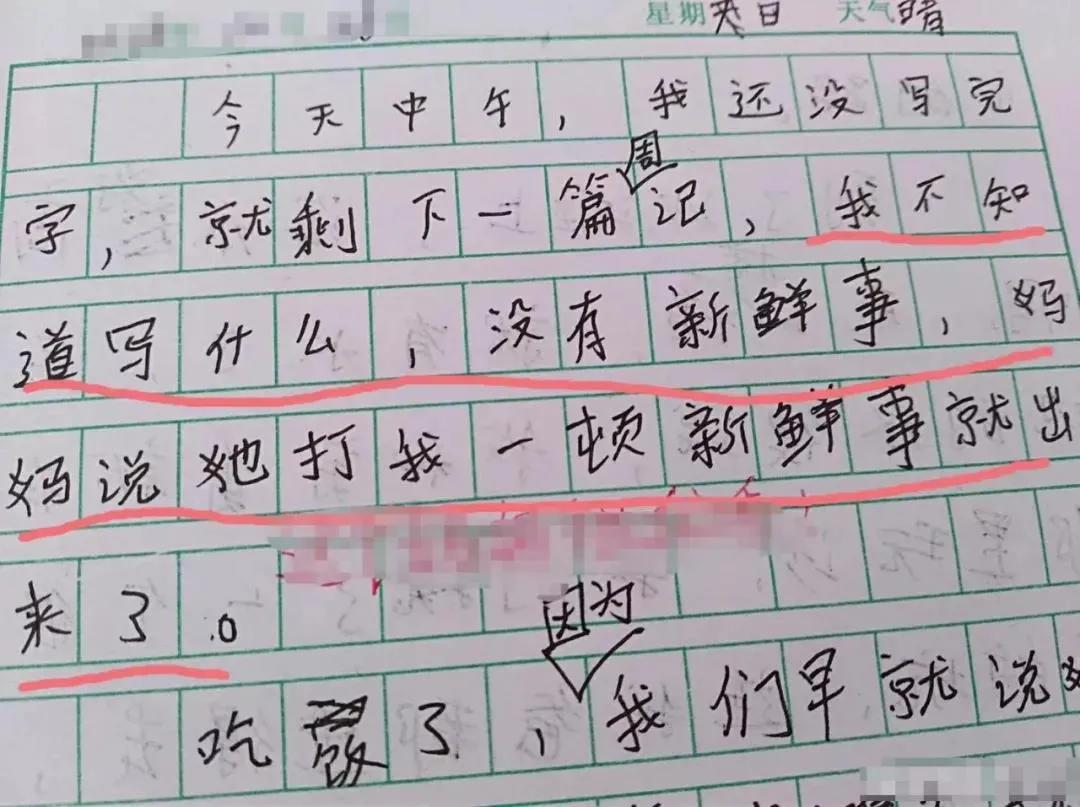 星期 天日 天气 晴
今天中午，我还没写完
周
字，就剩下一篇记，我不知
道写什么，没有新鲜事，妈
妈说她打我一顿新鲜事就出
来了。
因为
吃饭了，我们早就说